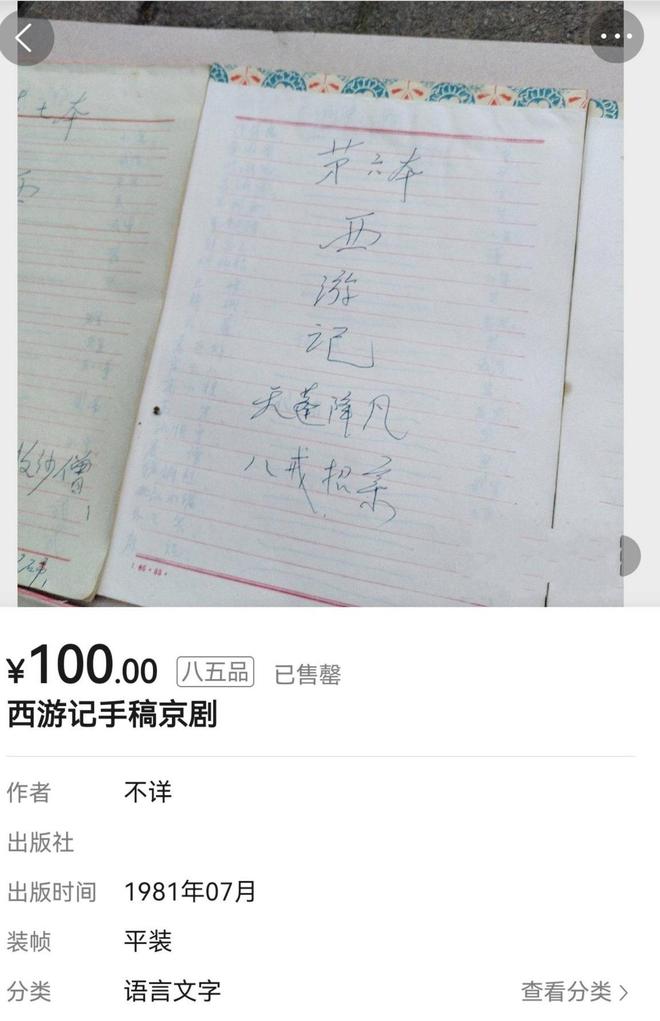 七本
西
收沙僧
第六本
西
游
记
天蓬降凡
八戒招亲
¥100.00 八五品 已售罄
西游记手稿京剧
作者 不详
出版社
出版时间 1981年07月
装帧 平装
分类 语言文字 查看分类